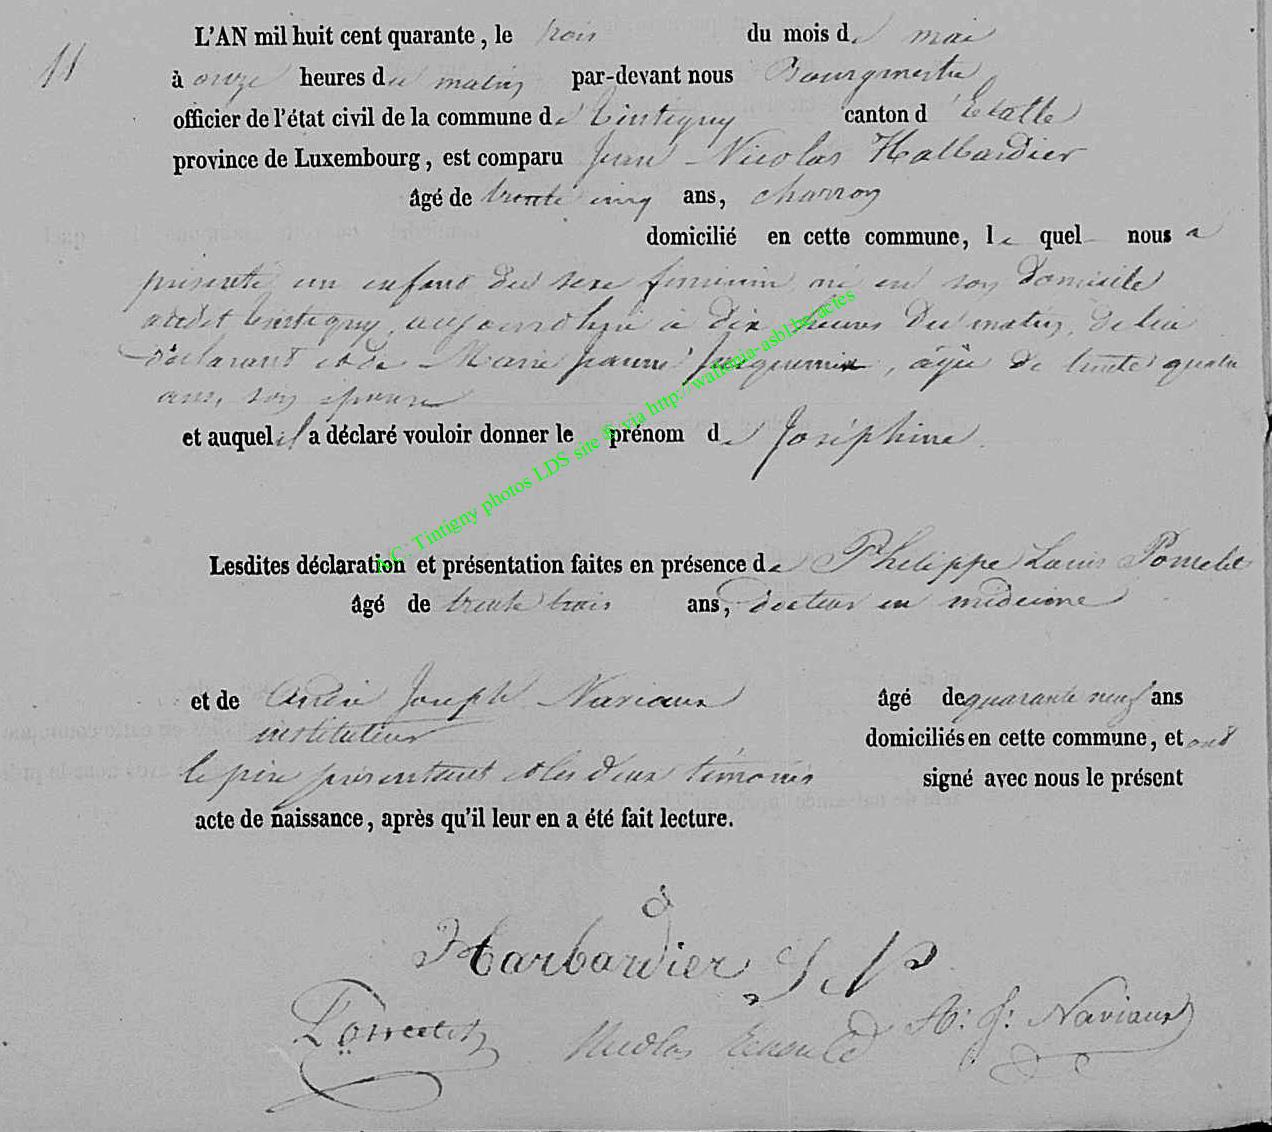 11
L'AN mil huit cent quarante, le trois du mois de mai
à onze heures du matin par-devant nous Bourgmestre
officier de l'état civil de la commune de Tintigny canton d'Etalle
province de Luxembourg, est comparu Jean Nicolas Halbardier
âgé de trente cinq ans, charron
domicilié en cette commune, le quel nous a
présenté un enfant du sexe féminin né en son domicile
audit Tintigny, aujourd'hui à dix heures du matin, de lui
déclarant et de Marie Jeanne Jacquemin, âgée de trente quatre
ans, son épouse
et auquel il a déclaré vouloir donner le prénom de Joséphine.
Lesdites déclaration et présentation faites en présence de Philippe Louis Poncelet
âgé de trente trois ans, docteur en médecine
et de André Joseph Naviaux âgé de quarante neuf ans
instituteur domiciliés en cette commune, et ont
le père présentant et les deux témoins signé avec nous le présent
acte de naissance, après qu'il leur en a été fait lecture.
Harbardier J N
Poncelet Nicolas A: J: Naviaux
A.C. Tintigny photos LDS site & via http://wallonia-asbl.be/actes